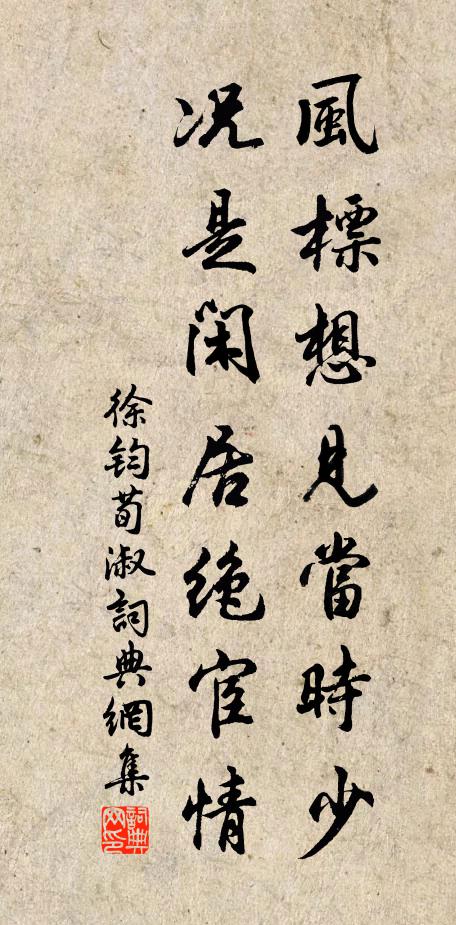 風標想見當時少
况是閑居絶宦情
徐鈞荀淑詞典網集
詞典网印